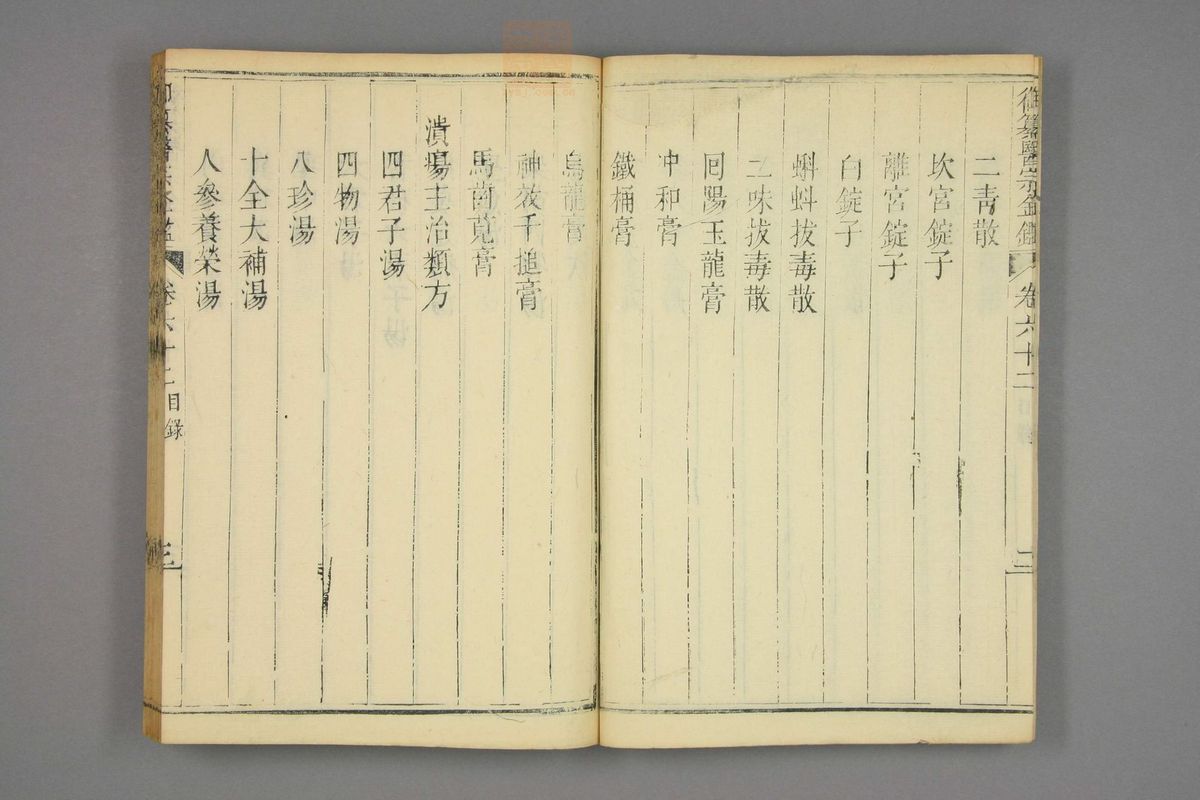 御纂醫宗金鑑 卷六十二 二
二青散
坎宮錠子
離宮錠子
白錠子
蝌蚪拔毒散
二味拔毒散
回陽玉龍膏
冲和膏
鐵桶膏
烏龍膏
神效千搥膏
馬齒莧膏
潰瘍主治類方
四君子湯
四物湯
八珍湯
十全大補湯
人參養榮湯
卷六十二 目錄 三